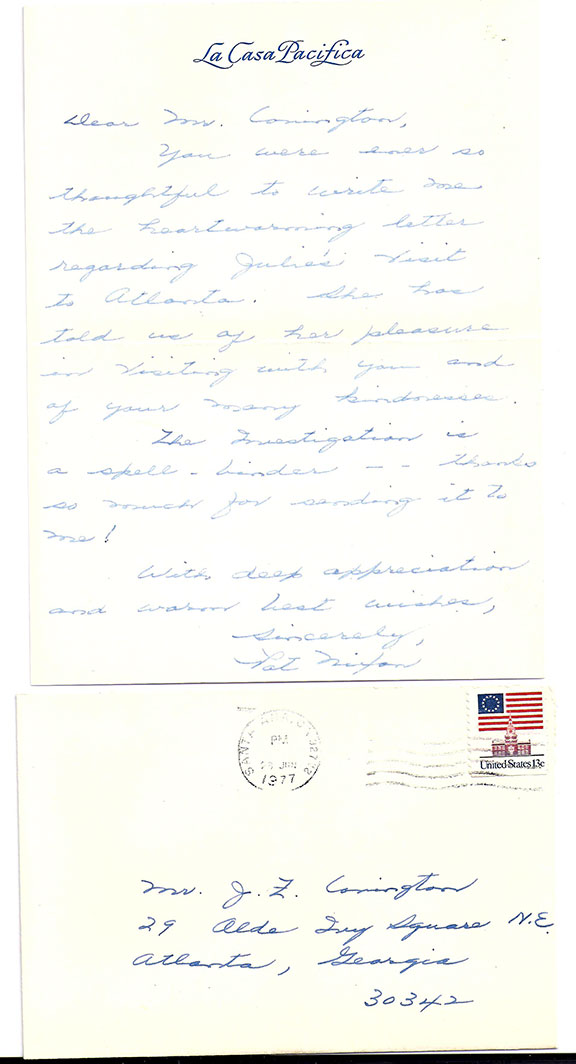 La Casa Pacifica
Dear Mr. Conington,
You were ever so
thoughtful to write me
the heartwarming letter
regarding Julie's visit
to Atlanta. She has
told us of her pleasure
in visiting with you and
of your many kindnesses.
The Investigation is
a spell-binder -- thanks
so much for sending it to
me!
With deep appreciation
and warm best wishes,
Sincerely,
Pat Nixon
SANTA ANA, C
PM
JUN
1977
United States 13c
Mr. J. Z. Conington
29 Olde Ivy Square N.E.
Atlanta, Georgia
30342